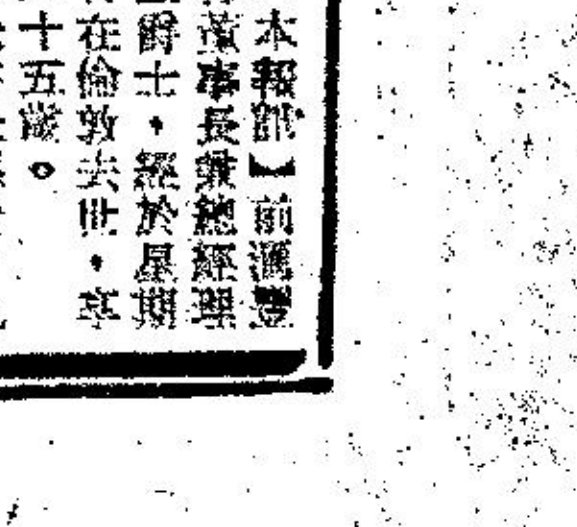 本報訊】前滙豐
董事長兼總經理
爵士，經於星期
在倫敦去世，享
十五歲。